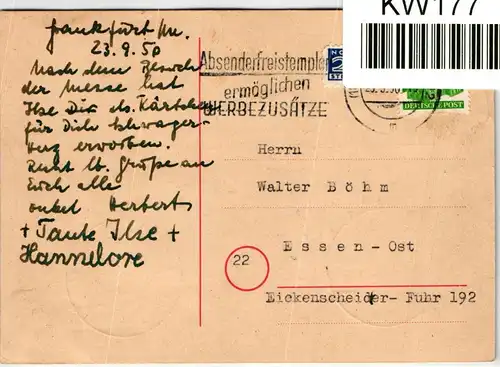 KW177
Frankfurt M.
23.9.50
Nach dem Besuch
der Messe hat
Ilse Dir ds. Kärtchen
für Dein Schwager-
herz erworben.
Recht lb. Grüße an
Euch alle
onkel Herbert
+ Tante Ilse +
Hannelore
Absenderfreistempler
ermöglichen
WERBEZUSÄTZE
DEUTSCHE POST
Herrn
Walter Böhm
Essen-Ost
22
Eickenscheider-Fuhr 192